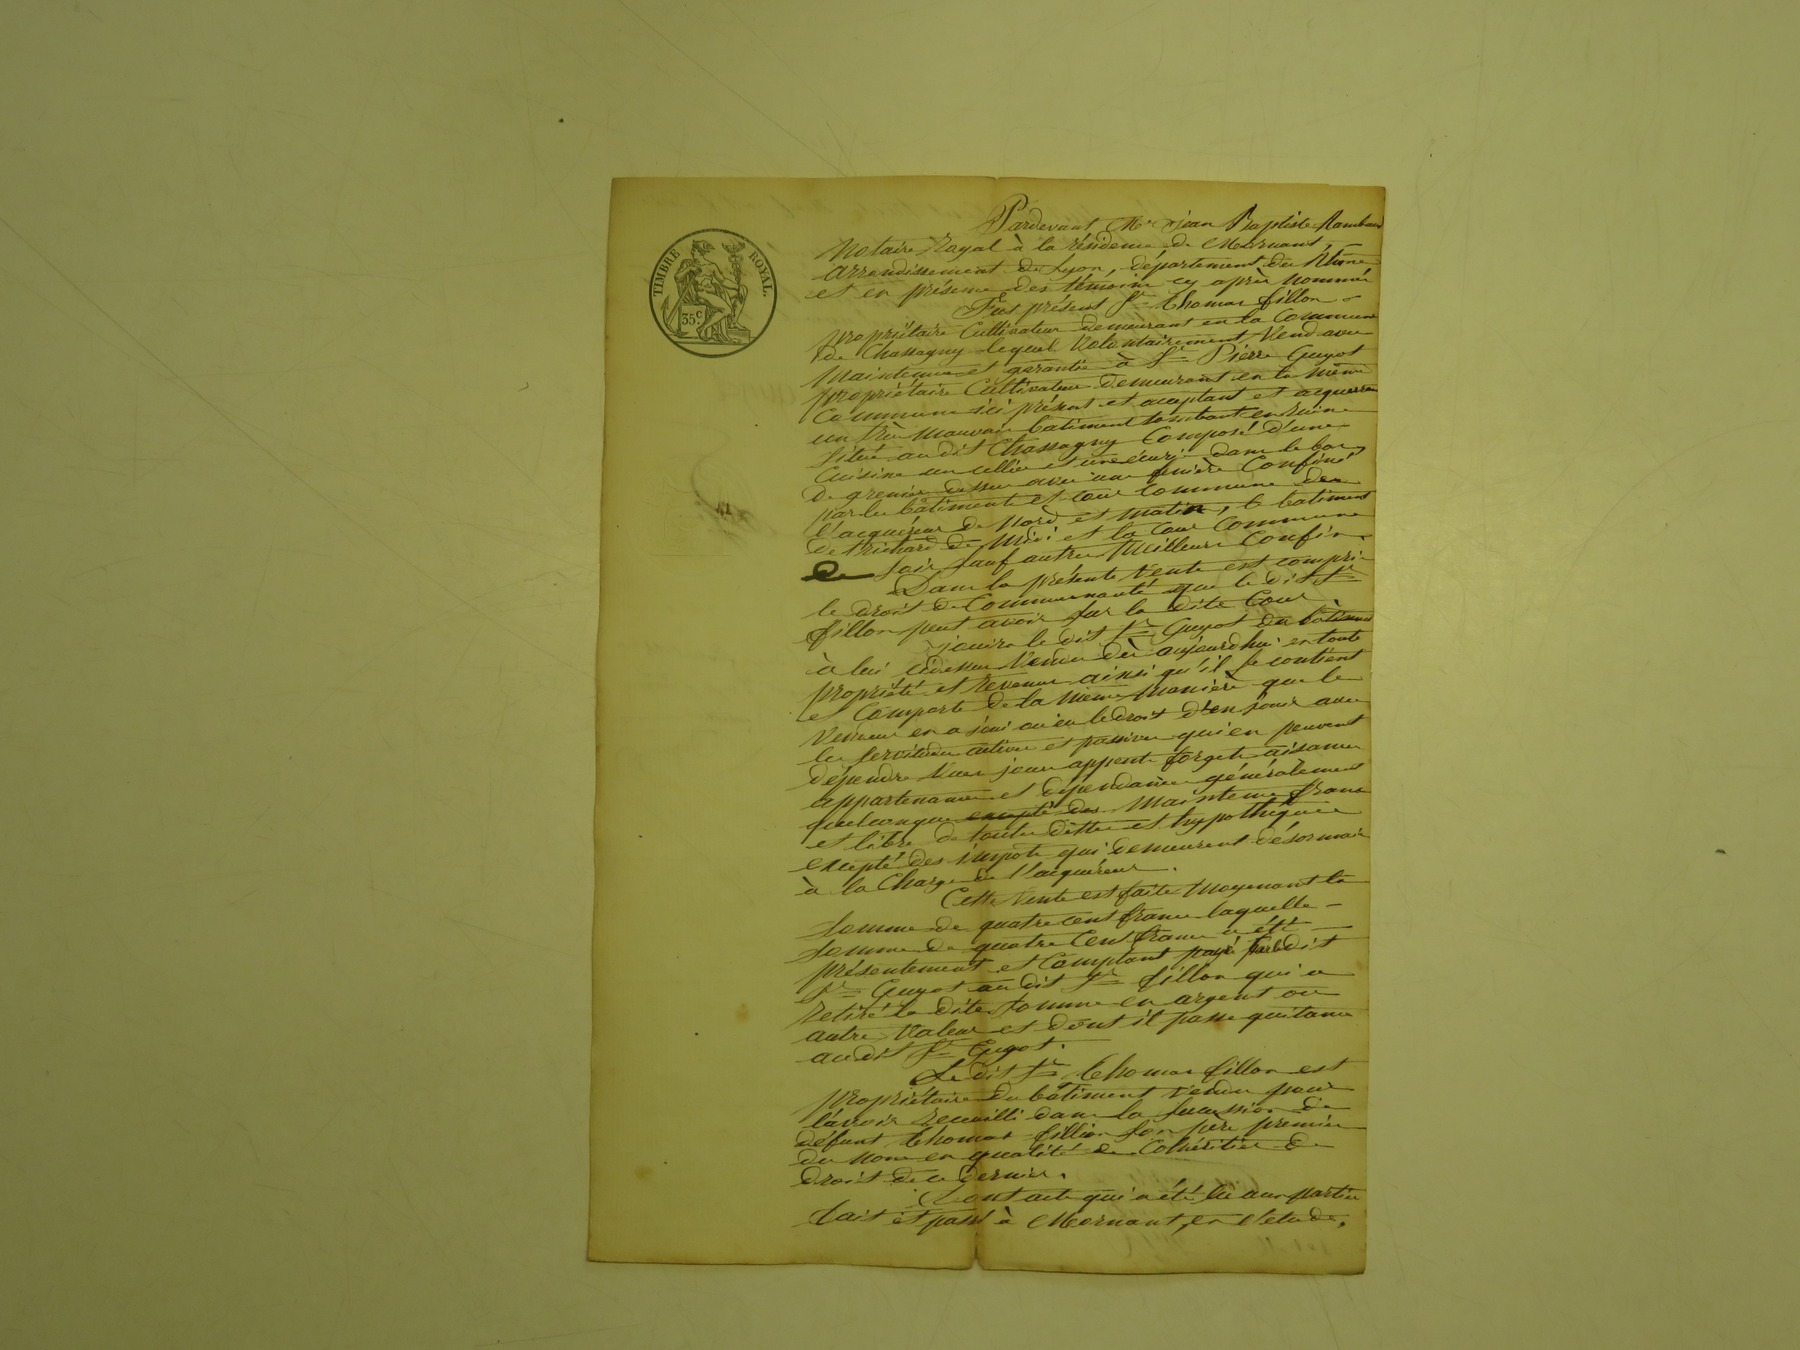 TIMBRE ROYAL.
35 C.
Pardevant Me Jean Baptiste Rambaud
Notaire Royal à la résidence de Mornant
arrondissement de Lyon, département du Rhône
et en présence des témoins cy après nommés
Fut présent Sr Thomas fillon
propriétaire Cultivateur demeurant en la Commune
de Chassagny lequel Volontairement Vend avec
Maintenue et garantie à Sr Pierre Guyot
propriétaire Cultivateur demeurant en la même
Commune ici présent et acceptant et acquérant
un très mauvais batiment tombant en ruine
situé audit Chassagny Composé d'une
Cuisine un cellier et une écurie dans le bas
De grenier dessus avec une fenière Confinés
par les bâtiments et cour commune de
l'acquéreur de Nord et matin, le batiment
de trichard de Midi et la Cour Commune
de soir sauf autres Meilleurs Confins.
Dans la présente Vente est compris
le droit de Communauté que le dit Sr
fillon peut avoir sur la dite Cour.
jouira le dit Sr Guyot du bâtiment
à lui cidessus Vendu dès aujourdhui en toute
propriété et revenus ainsi qu'il se contient
et Comporte de la même manière que le
Vendeur en a joui ou eu le droit d'en jouir avec
les servitudes actives et passives qui en peuvent
dépendre Vues jours appents forgets aisances
appartenances et dépendances généralement
quelconques excepté des Maintenu franc
et libre de toutes dettes et hypothèques
excepté des impots qui demeurent désormais
à la Charge de l'acquéreur.
Cette Vente est faite Moyenant la
somme de quatre cent francs laquelle
somme de quatre Cent francs a été
présentement et Comptant payé par ledit
Sr Guyot audit Sr fillon qui a
retiré la dite somme en argent ou
autre Valeur et dont il passe quitance
audit Sr Guyot.
Le dit Sr Thomas fillon est
propriétaire du bâtiment vendu pour
l'avoir recueilli dans la succession de
défunt Thomas fillion son père premier
du nom en qualité de Cohéritier de
droit de ce dernier.
Dont acte qui a été lu aux parties
fait et passé à Mornant en l'etude,